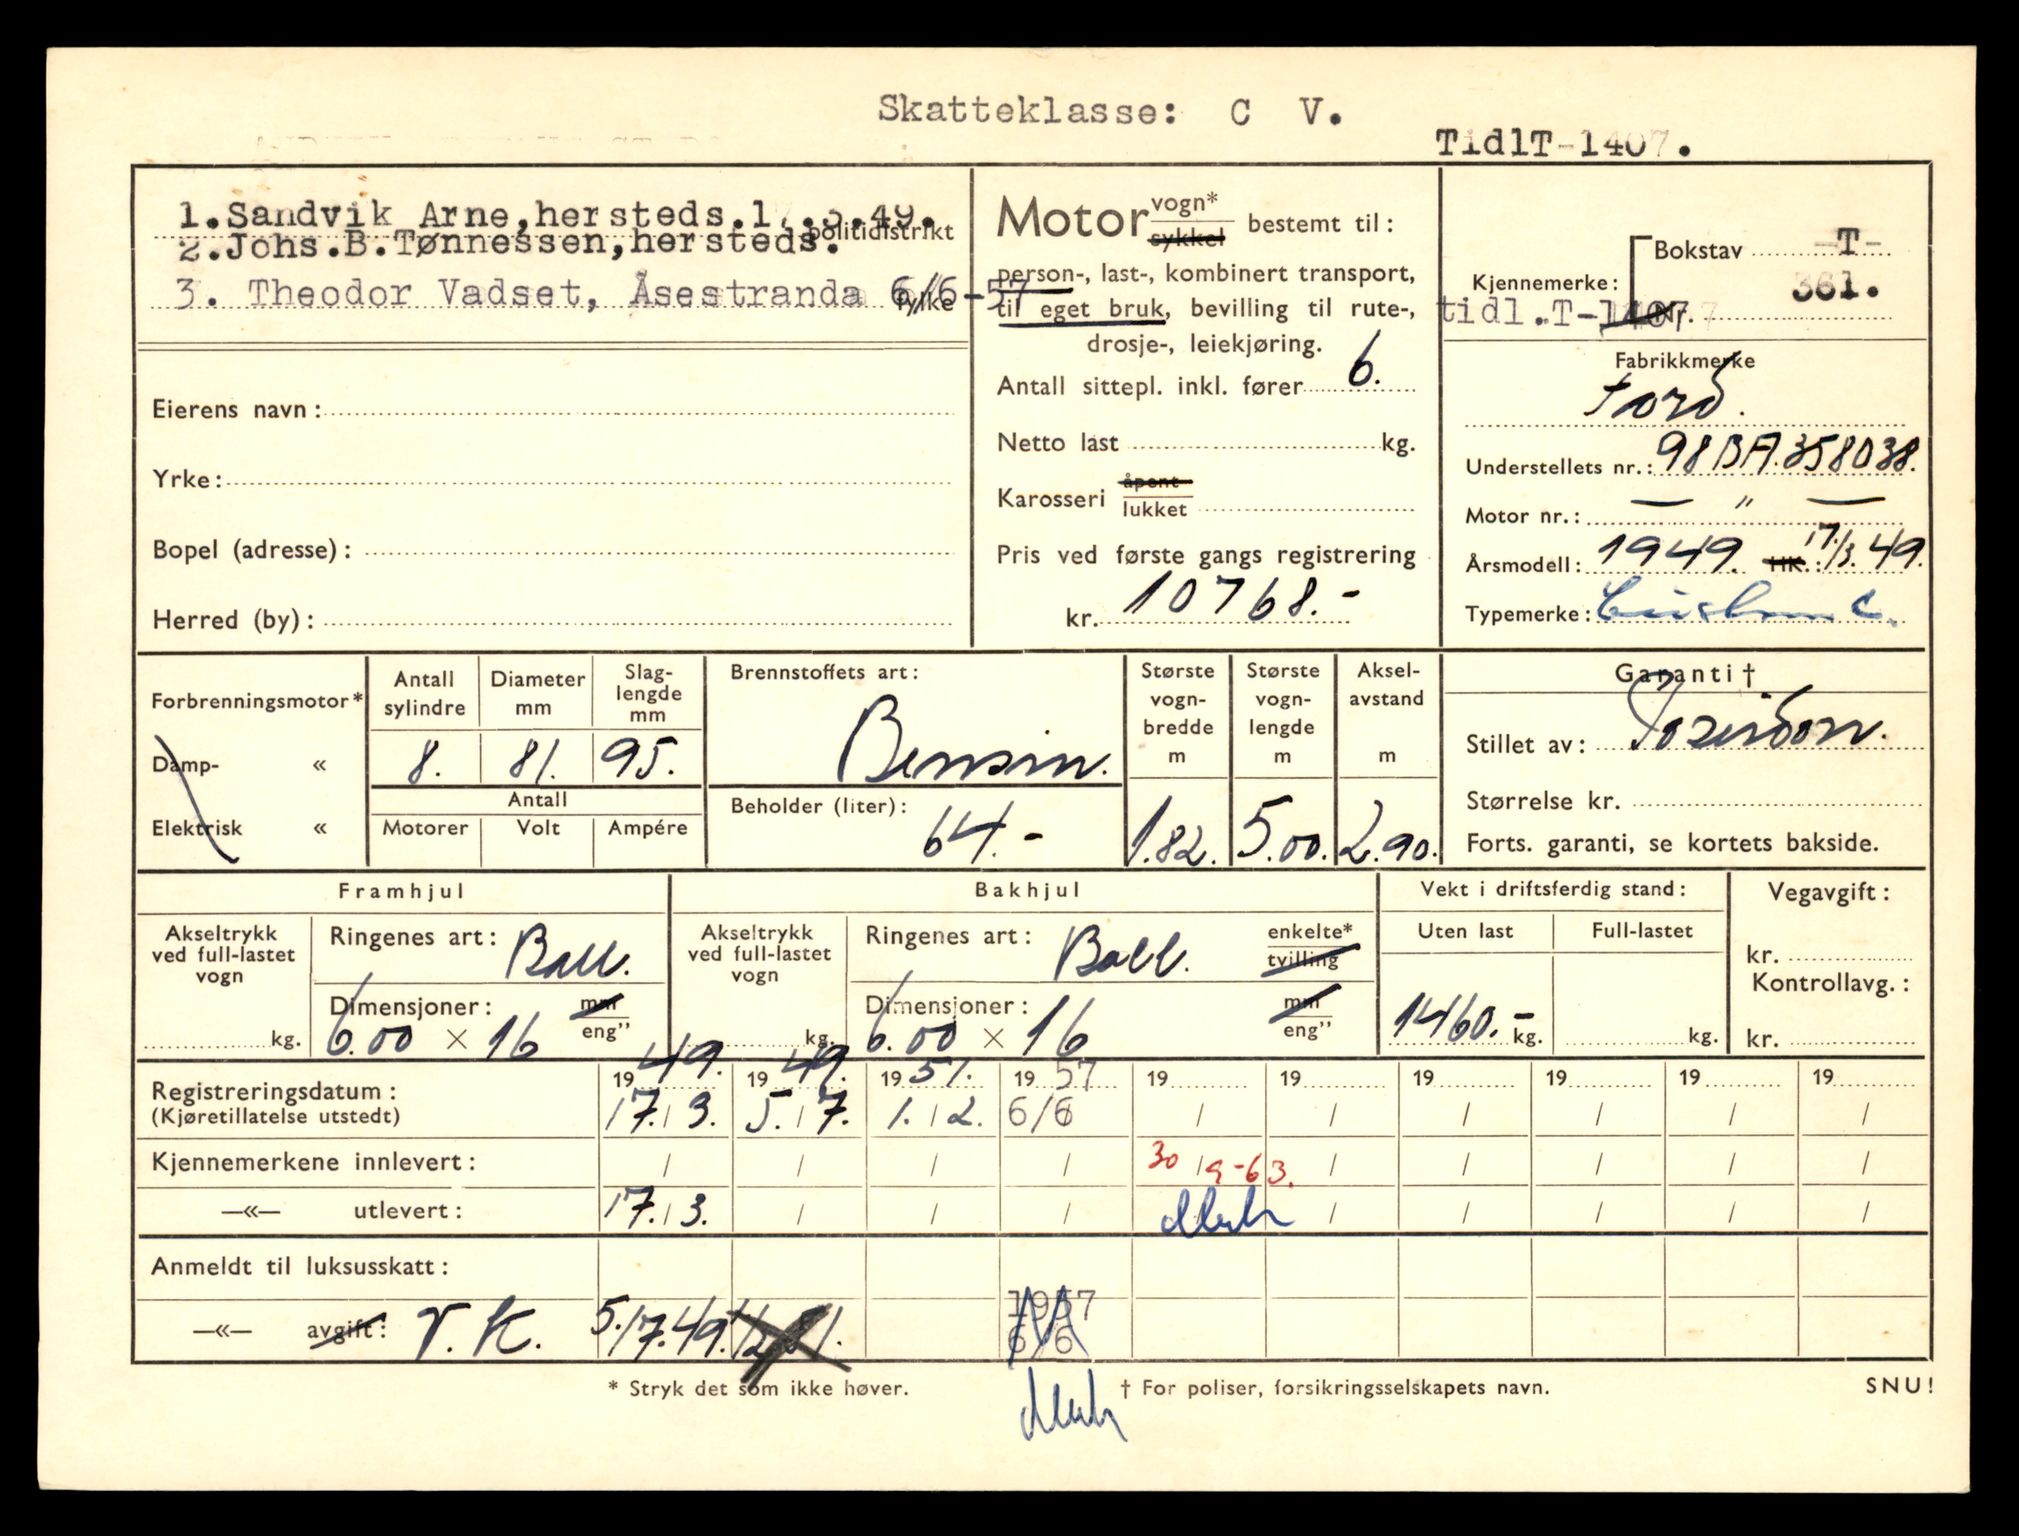 Skatteklasse: C V.
TidlT-1407.
1.Sandvik Arne,hersteds.17.3.49.
politidistrikt
2.Johs.B.Tønnessen,hersteds.
3. Theodor Vadset, Åsestranda 6/6-57
fylke
Eierens navn:
Yrke:
Bopel (adresse):
Herred (by):
Motor vogn* sykkel bestemt til:
person-, last-, kombinert transport,
til eget bruk, bevilling til rute-,
drosje-, leiekjøring.
Antall sittepl. inkl. fører 6.
Netto last kg.
Karosseri åpent lukket
Pris ved første gangs registrering
kr. 10768.-
Kjennemerke: Bokstav -T-
361.
tidl.T-1407 Nr.
Fabrikkmerke
Ford.
Understellets nr.: 98BA.358038.
Motor nr.: — " —
Årsmodell: 1949. HK.: 17/3.49.
Typemerke:
Forbrenningsmotor*
Damp- «
Elektrisk «
Antall sylindre 8.
Diameter mm 81.
Slaglengde mm 95.
Antall
Motorer Volt Ampére
Brennstoffets art:
Bensin.
Beholder (liter):
64.-
Største vognbredde m 1.82.
Største vognlengde m 5.00.
Akselavstand m 2.90.
Garanti †
Stillet av:
Størrelse kr.
Forts. garanti, se kortets bakside.
Framhjul
Akseltrykk ved full-lastet vogn kg.
Ringenes art: Ball.
Dimensjoner: mm eng”
6.00 × 16
Bakhjul
Akseltrykk ved full-lastet vogn kg.
Ringenes art: Ball. enkelte* tvilling
Dimensjoner: mm eng”
6.00 × 16
Vekt i driftsferdig stand:
Uten last Full-lastet
1460.- kg. kg.
Vegavgift:
kr.
Kontrollavg.:
kr.
Registreringsdatum: 1949. 1949. 1951. 1957 19 19 19 19 19 19
(Kjøretillatelse utstedt) 17./3. 5./7. 1./2. 6/6 / / / / / /
Kjennemerkene innlevert: / / / / 30/9-63. / / / / /
—«— utlevert: 17./3. / / / / / / / /
Anmeldt til luksusskatt:
—«— avgift: V.K. 5./7.49. 1/2 51. 1957
6/6
* Stryk det som ikke høver.
† For poliser, forsikringsselskapets navn.
SNU!